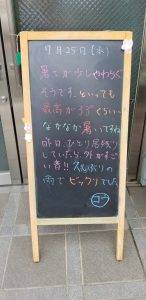 7月25日(水)
暑さが少しやわらぐ
そうです、といっても
最高が33℃くらい…
なかなか暑いですね
昨日、ひとり居残り
していたら、外がすご
い音!! 久しぶりの
雨でビックリでした